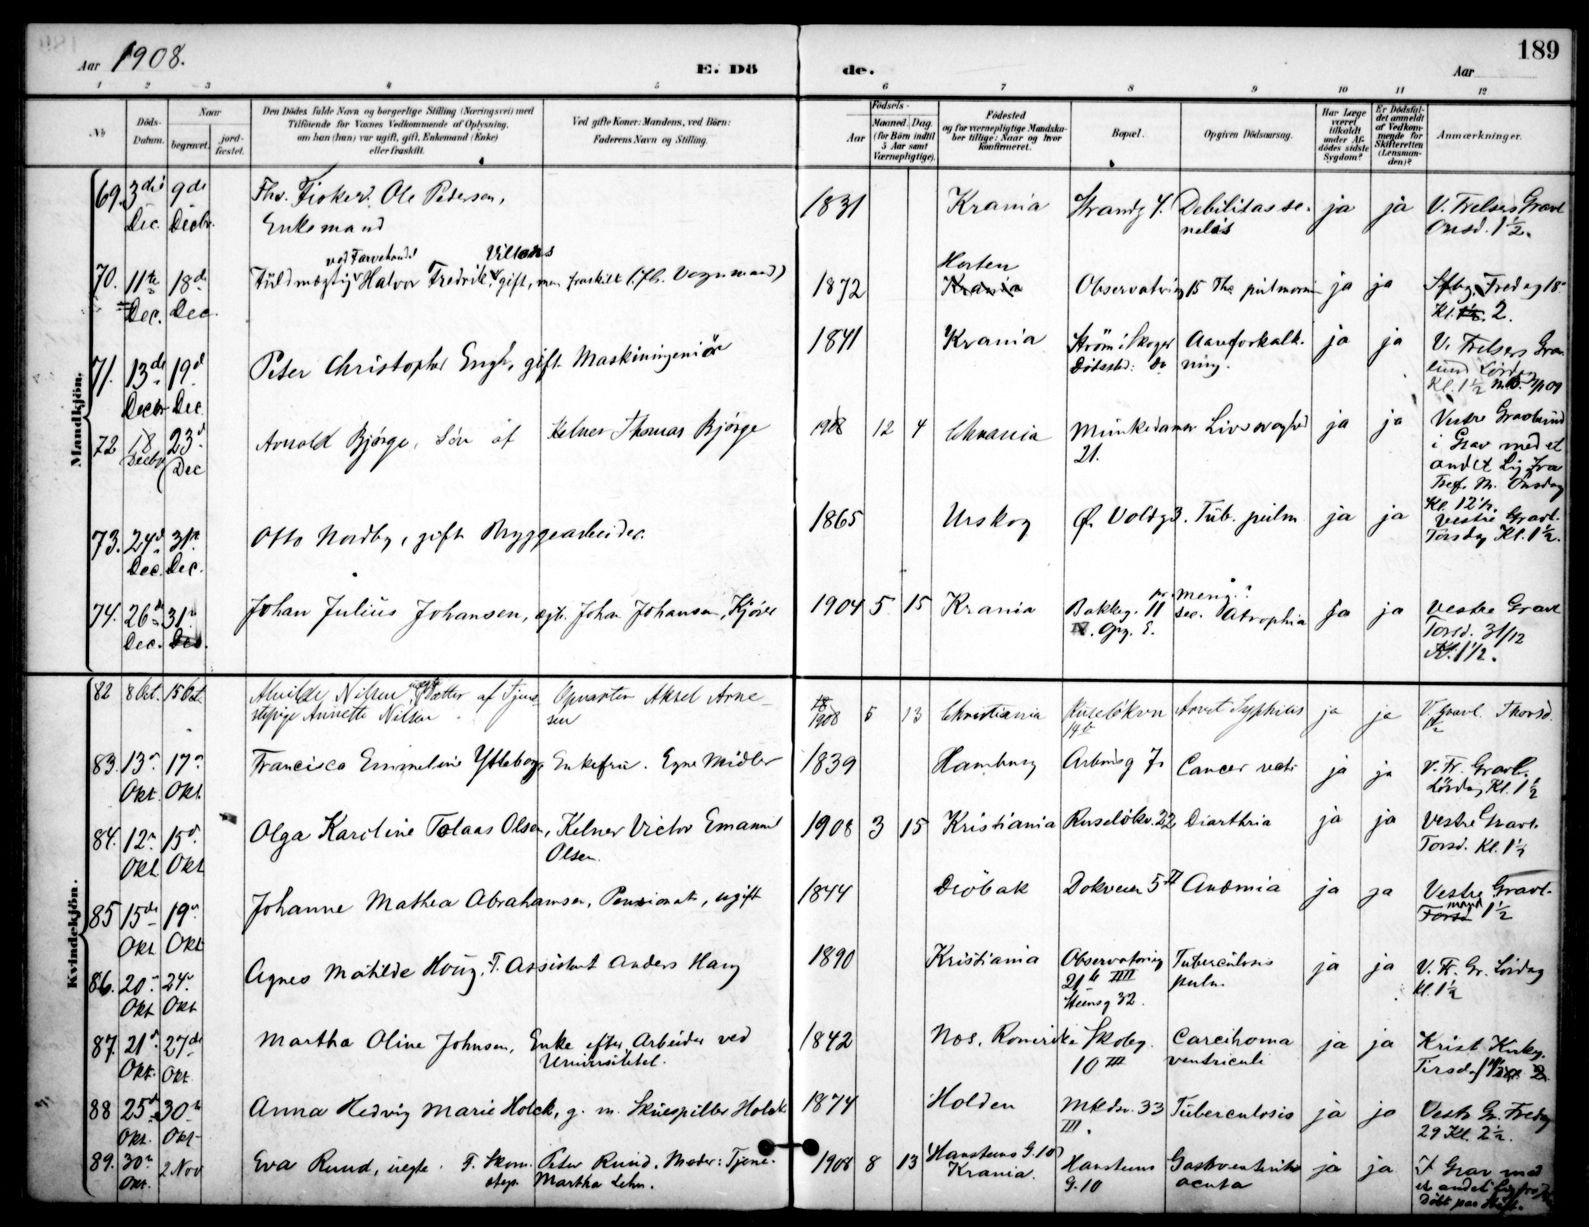 Aar 1908.
E. Döde.
Aar
189
1 2 3 4 5 6 7 8 9 10 11 12
No
Döds-Datum.
Naar
begravet.
jordfæstet.
Den Dödes fulde Navn og borgerlige Stilling (Næringsvei) med
Tilföiende for Voxnes Vedkommende af Oplysning,
om han (hun) var ugift, gift, Enkemand (Enke)
eller fraskilt.
Ved gifte Koner: Mandens, ved Börn:
Faderens Navn og Stilling.
Födsels-
Aar
Maaned. Dag.
(for Börn indtil
5 Aar samt
Værnepligtige).
Födested
og for værnepligtige Mandska-
ber tillige: Naar og hvor
Konfirmeret.
Bopæl.
Opgiven Dödsaarsag.
Har Læge
været
tilkaldt
under Af-
dödes sidste
Sygdom?
Er Dödsfal-
det anmeldt
af Vedkom-
mende for
Skifteretten
(Lensman-
den)?
Anmærkninger.
Mandkjön.
69. 3die Dec. 9de Decbr. Fhv. Fisker Ole Pedersen, Enkemand 1831 Krania Strandg 4. Debilitas senelis ja ja V. Frelsers Gravl Onsd. 1½.
70. 11te Dec. 18de Dec. Fuldmægtig ved Farvehandel Halvor Fredrik gift, men fraskilt (Fh. Vognmand) 1872 Horten Krania Observatorieg 15 ja ja Fredag 18 Kl. 2.
71. 13de Decbr 19d Dec. Peter Christopher Engh, gift Maskiningeniör 1841 Krania Ström i Skoger Dödssted: do Aareforkalkning. ja ja V. Frelsers Gravlund Lördag Kl. 1½
72 18 Decbr 23d Dec Arnold Bjørge, Sön af Kelner Thomas Bjørge 1908 12 4 Chrania Munkedamsv 21. Livssvaghed ja ja Vestre Gravlund i Grav med et andet Lig fra Onsdag Kl. 12½.
73. 24d Dec. 31te Dec. Otto Nordby, gift Bryggearbeider. 1865 Urskog Ø. Voldg 3. Tub. pulm ja ja Vestre Gravl. Torsdag Kl. 1½.
74. 26de Dec. 31te Dec. Johan Julius Johansen, ægte. Johan Johansen, Kjörer 1904 5 15 Krania Bakkeg. 11 Opg. E. Atrophia ja ja Vestre Gravl Torsd. 31/12 Kl. 1½.
Kvindekjön.
82 8 Okt. 15 Okt Alvilde Nilsen uægte Datter af Tjenestepige Annette Nilsen Opvarter Aksel Arnesen 1908 5 13 Christiania Ruselökvn 14b Arvet Syphilis ja ja V. Gravl. Thorsd. ½
83. 13de Okt. 17de Okt. Francisca Emmeline Ytteborg, Enkefru. Egne Midler 1839 Hamburg Arbinsg 7 Cancer recti ja ja V. Fr. Gravl. Lördag Kl. 1½
84. 12te Okt 15de Okt Olga Karoline Tolaas Olsen, Kelner Victor Emanuel Olsen. 1908 3 15 Kristiania Ruselökv. 22 Diarthria ja ja Vestre Gravl. Torsd. Kl. 1½
85 15de Okt 19de Okt Johanne Mathea Abrahamsen, Pensionat, ugift 1844 Dröbak Dokveien 5 II Anæmia ja ja Vestre Gravl. Torsd Mand 1½
86. 20de Okt 24de Okt Agnes Matilde Houg, F. Assistent Anders Haug 1890 Kristiania Observatorieg 21 b IIII Steensg 32. Tuberculosis pulm. ja ja V. Fr. Gr. Lördag Kl. 1½
87. 21de Okt. 27de Okt. Martha Oline Johnsen, Enke efter Arbeider ved Universitetet. 1842 Nos, Romerike Skoleg. 10 III Carcinoma ventriculi ja ja Krist. Kirkeg. Tirsdag
88 25de Okt. 30te Okt. Anna Hedvig Marie Holck, g. m. Skuespiller Holck 1874 Holden Mkdv. 33 III. Tuberculosis ja ja Vestr Gr. Fredag 29 Kl. 2½.
89. 30te Okt. 2 Nov Eva Ruud, uegte. F. Skom. Peter Ruud. Moder: Tjenestep. Martha Lehn. 1908 8 13 (Hanstens G. 10) Krania. Hanstens G. 10 Gastroenteritis acuta ja ja I Grav med et andet Lig